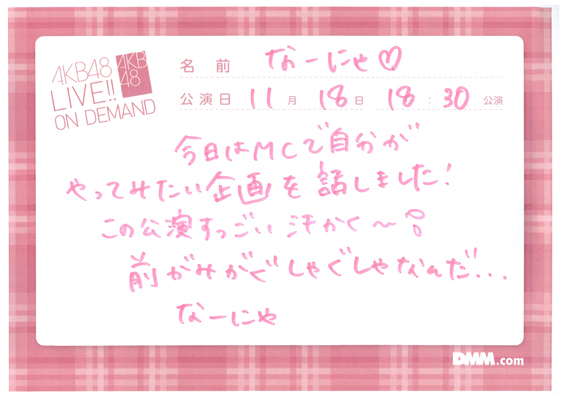 AKB48
LIVE!!
ON DEMAND
AKB
48
名前 なーにゃ♡
公演日 11月18日 18:30公演
今日はMCで自分が
やってみたい企画を話しました!
この公演すっごい汗かく〜
前がみがぐしゃぐしゃなんだ...
なーにゃ
DMM.com